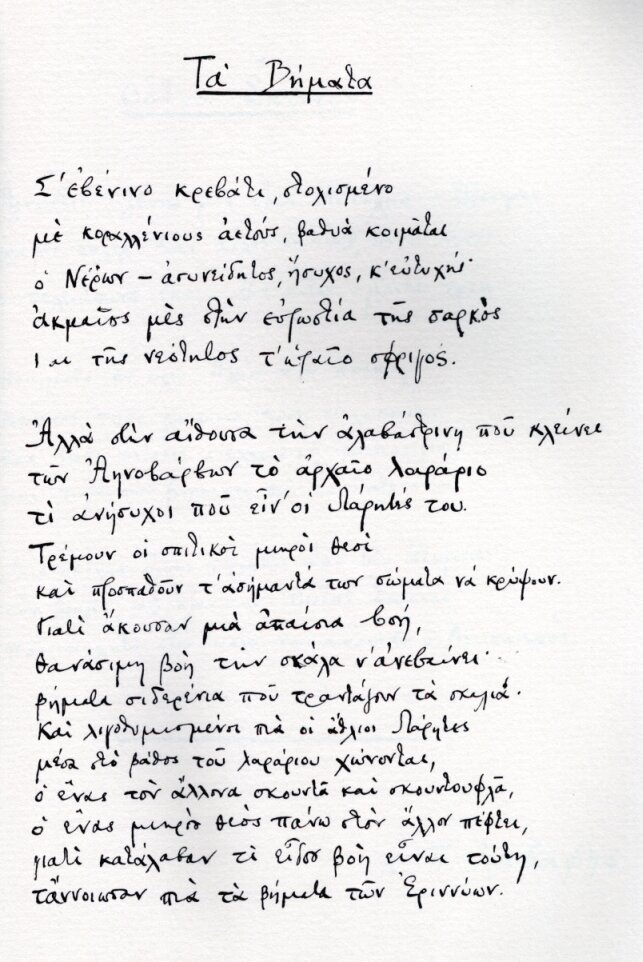 Τὰ Βήματα
Σ' ἐβένινο κρεβάτι, στολισμένο
μὲ κοραλλένιους ἀετούς, βαθυὰ κοιμᾶται
ὁ Νέρων – ἀσυνείδητος, ἥσυχος, κ' εὐτυχής·
ἀκμαῖος μὲς στὴν εὐρωστία τῆς σαρκὸς
καὶ τῆς νεότητος τ' ὡραῖο σφρίγος.
Ἀλλὰ στὴν αἴθουσα τὴν ἀλαβάστρινη ποῦ κλείνει
τῶν Ἀηνοβάρβων τὸ ἀρχαῖο λαράριο
τὶ ἀνήσυχοι ποῦ εἶν' οἱ Λάρητές του.
Τρέμουν οἱ σπιτικοὶ μικροὶ θεοὶ
καὶ προσπαθοῦν τ' ἀσήμαντά των σώματα νὰ κρύψουν.
Γιατὶ ἄκουσαν μιὰ ἀπαίσια βοή,
θανάσιμη βοὴ τὴν σκάλα ν' ἀνεβαίνει·
βήματα σιδερένια ποῦ τραντάζουν τὰ σκαλιά·
Καὶ λιγοθυμισμένοι πιὰ οἱ ἄθλιοι Λάρητες
μέσα στὸ βάθος τοῦ λαράριου χώνονται,
ὁ ἕνας τὸν ἄλλονα σκουντᾶ καὶ σκουντουφλᾶ,
ὁ ἕνας μικρὸς θεὸς πάνω στὸν ἄλλον πέφτει,
γιατὶ κατάλαβαν τὶ εἶδος βοὴ εἶναι τούτη,
τἄννοιωσαν πιὰ τὰ βήματα τῶν Ἐριννύων.